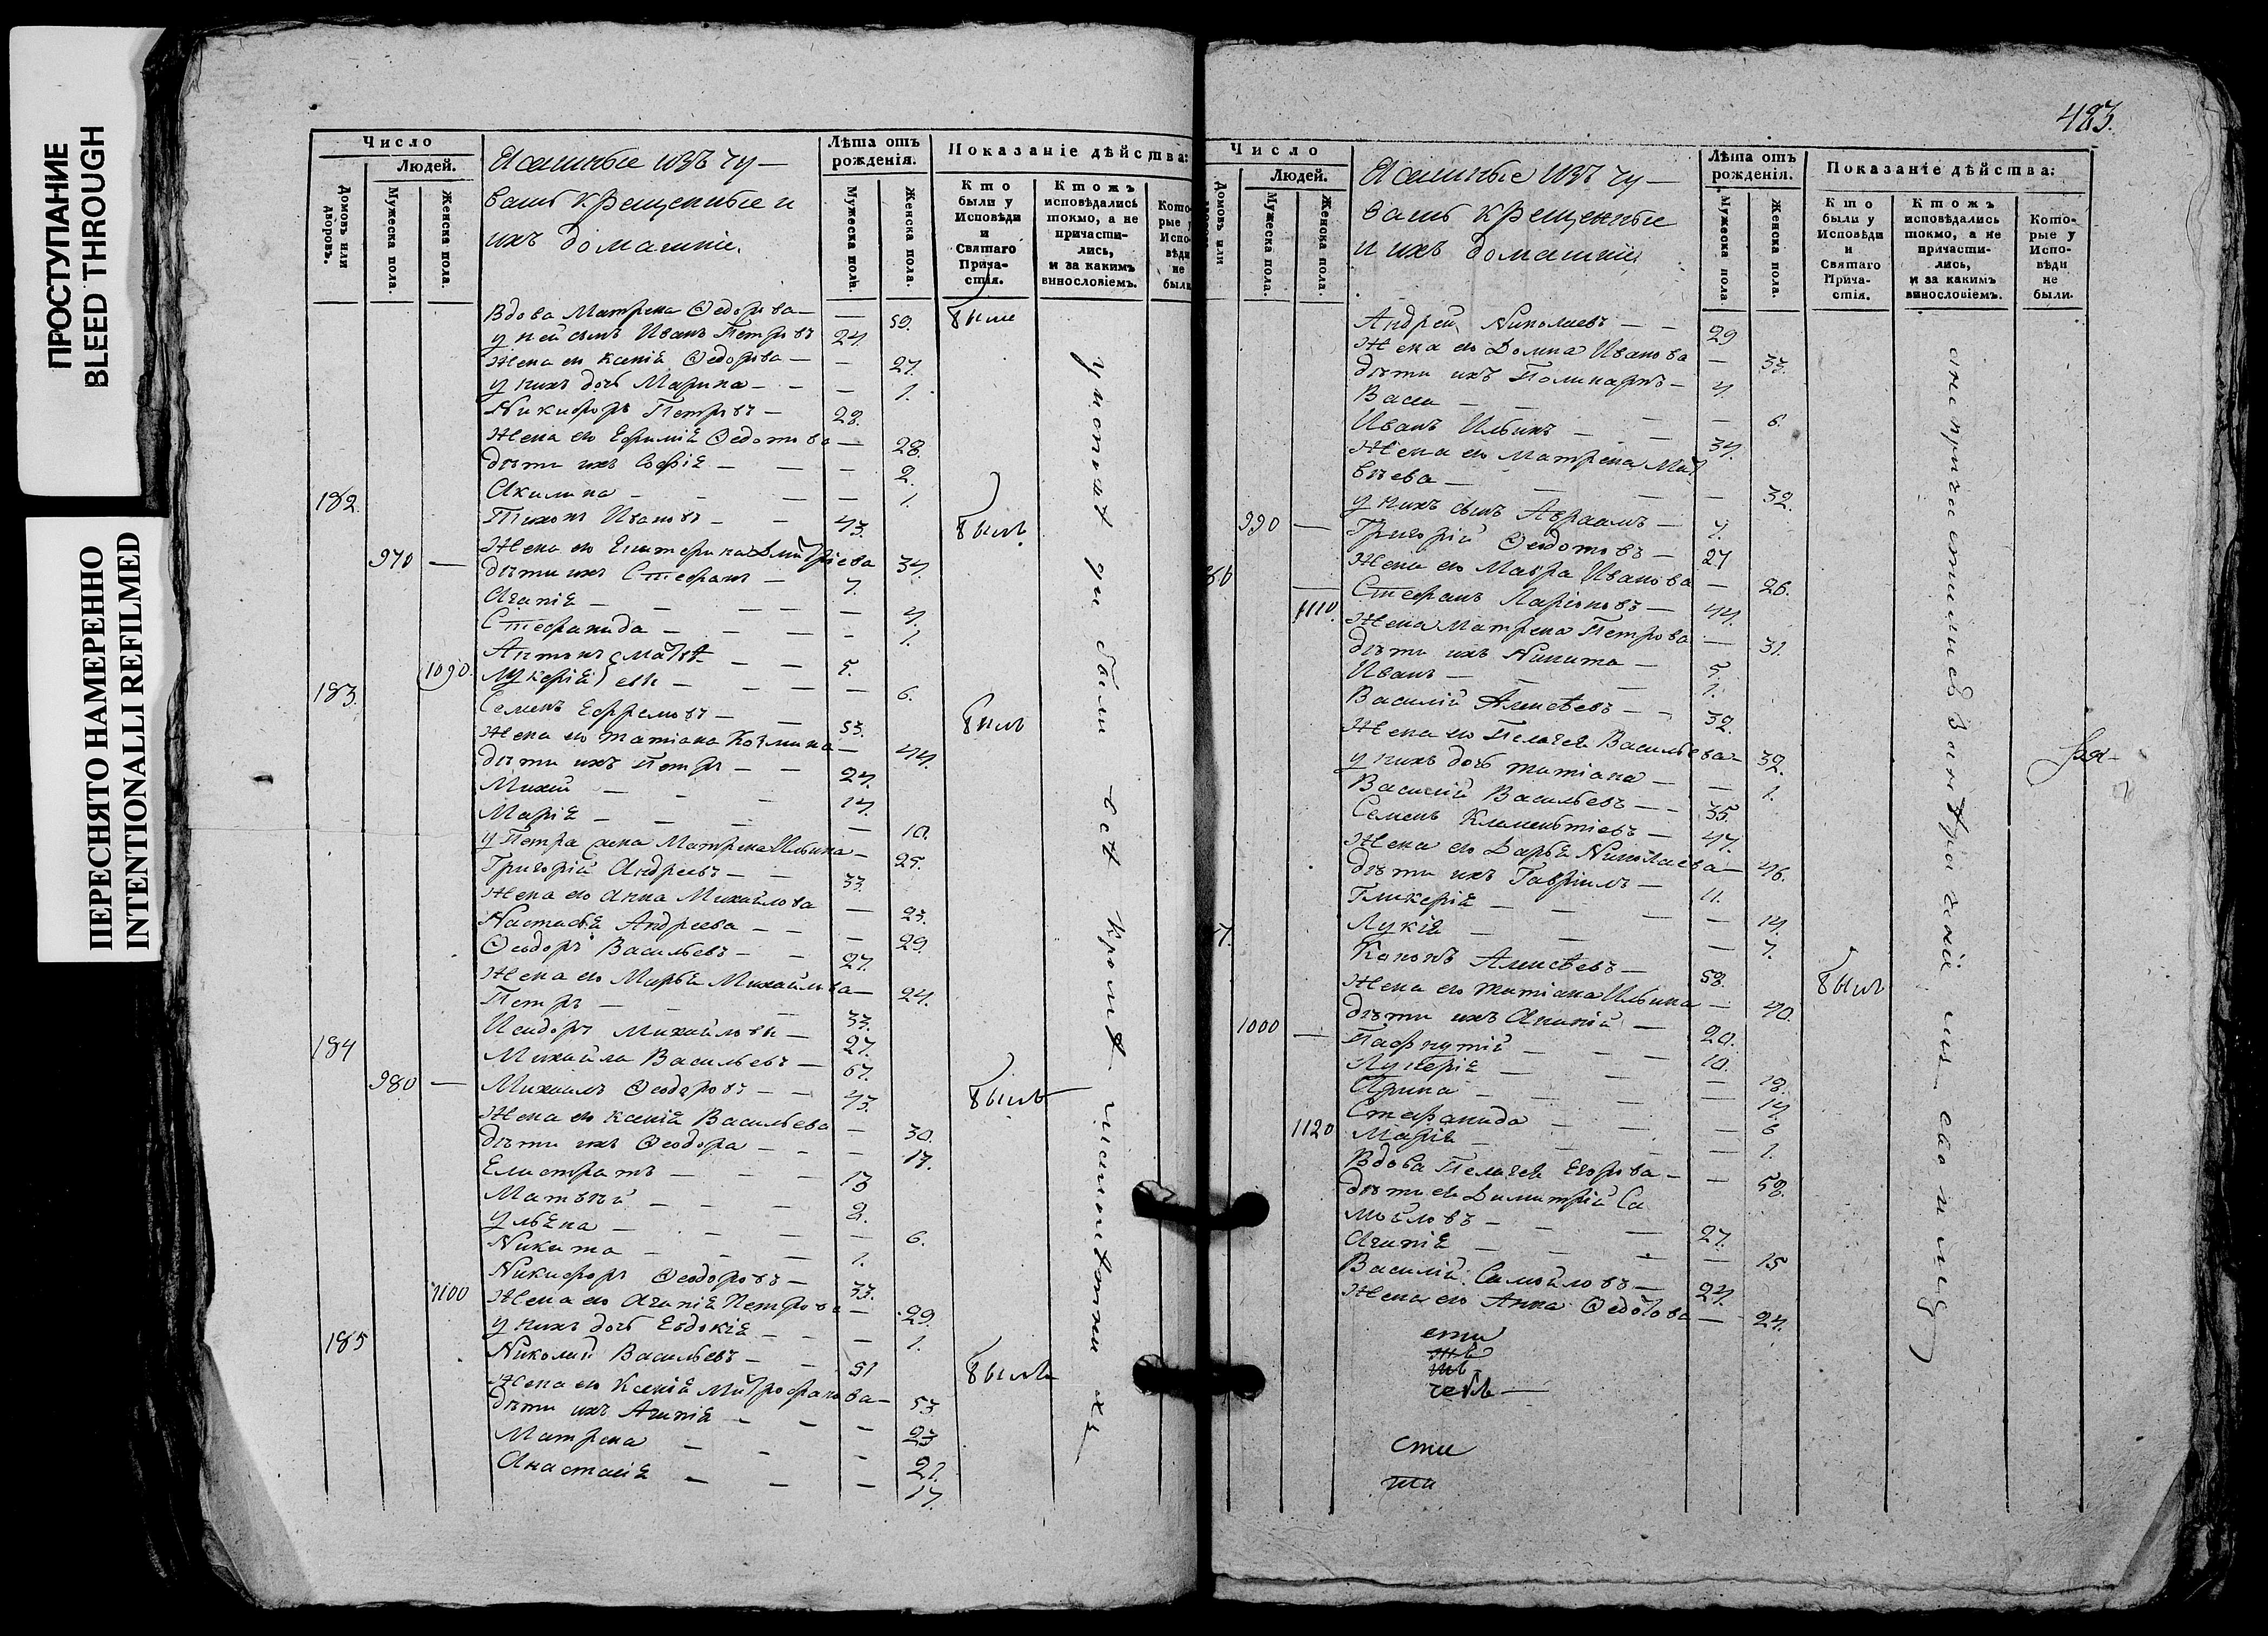 ПРОСТУПАНИЕ
BLEED THROUGH
ПЕРЕСНЯТО НАМЕРЕННО
INTENTIONALLI REFILMED
Число
Людей.
Домовъ или дворовъ.
Мужеска пола.
Женска пола.
Ясашные изъ чу-
вашъ крещенные и
ихъ домашніи.
Лѣта отъ рожденія.
Мужеска пола.
Женска пола.
Показаніе дѣйства:
Кто были у Исповѣди и Святаго Прича-стія.
Ктожъ исповѣдались токмо, а не причасти-лись, и за какимъ винословіемъ.
Кото-рые у Испо-вѣди не были
Вдова Матрена Ѳедорова — — 59. были
у ней сынъ Иванъ Петровъ 24.
Жена ево Ксенія Ѳедорова — — 27.
у нихъ дочь Марина — — 1.
Никифоръ Петровъ — 28.
Жена ево Ефимія Ѳедотова — 28.
дѣти ихъ Софія — — — 2.
Акилина — — — 1.
182. Тихонъ Ивановъ — — 43. былъ
970 — Жена ево Екатерина Дмитріева 34.
дѣти ихъ Стефанъ — 7.
Агапія — — — 4.
Стефанида — — — 1.
Антонъ 5.
1090. Лукерія — — — 6.
183. Семенъ Ефремовъ — — 53. былъ
Жена ево Татіана Козмина — 44.
дѣти ихъ Петръ — — 24.
Михей — — — 14.
Марія — — — 10.
у Петра жена Матрена Ильина — 25.
Григорій Андреевъ — — 33.
Жена ево Анна Михайлова — 23.
Настасья Андреева — — 29.
Ѳеодоръ Васильевъ — — 27.
Жена ево Марья Михайлова — 24.
Петръ — — — 33.
Исидоръ Михайловы — 27.
184 Михайла Васильевъ — 67.
980 — Михаилъ Ѳеодоровъ — — 43. былъ
Жена ево Ксенія Васильева — 30.
дѣти ихъ Ѳеодора — — — 17.
Елистратъ — — — 13
Матвѣй — — — 2.
Ульяна — — — 6.
Никита — — — 1.
Никифоръ Ѳеодоровъ — 33.
1100 Жена ево Агапія Петрова — 29.
у нихъ дочь Евдокія — — — 1.
185 Николай Васильевъ — — 51 былъ
Жена ево Ксенія Митрофанова — 53
дѣти ихъ Агапія — — — 23
Матрена — — — 21.
Анастасія — — — 17.
у исповѣди были всѣ кромѣ
483.
Число
Людей.
Домовъ или
Мужеска пола.
Женска пола.
Ясашные изъ чу-
вашъ крещенные
и ихъ домашніи
Лѣта отъ рожденія.
Мужеска пола
Женска пола.
Показаніе дѣйства:
Кто были у Исповѣди и Святаго Прича-стія.
Ктожъ исповѣдались токмо, а не причасти-лись, и за какимъ винословіемъ.
Кото-рые у Испо-вѣди не были.
Андрей Николаевъ — — 29
Жена ево Домна Иванова — 33.
дѣти ихъ Поликарпъ — 4.
Васса — — — 6.
Иванъ Ильинъ — — 34.
Жена ево Матрена Мат
вѣева — — — 32.
у нихъ сынъ Авраамъ — 7.
990 — Григорій Ѳедотовъ — 27
Жена ево Мавра Иванова — 26.
Стефанъ Ларіоновъ — 44.
1110. Жена Матрена Петрова — 31.
дѣти ихъ Никита — 5.
Иванъ — — 1.
Василій Алексѣевъ — — 32.
Жена ево Пелагея Васильева — 32.
у нихъ дочь Татіана — — 1.
Василій Васильевъ — — 35.
Семенъ Клементіевъ — 47.
Жена ево Дарья Николаева — 46.
дѣти ихъ Гавріилъ — 11.
Гликерія — — — 14.
Лукія — — — 7.
Кононъ Алексѣевъ — 58. былъ
Жена ево Татіана Ильина — 40.
дѣти ихъ Ананій — 20.
1000 — Пафнутій — — 10.
Лукерія — — — 18.
Ирина — — — 14
Стефанида — — — 6
1120 Марія — — — 1.
Вдова Пелагея Егорова — — 58.
дѣти ея Димитрій Са
мойловъ — — — 27.
Агапія — — — 15
Василій Самойловъ — 24.
Жена ево Анна Ѳедотова — 24.
не причастились